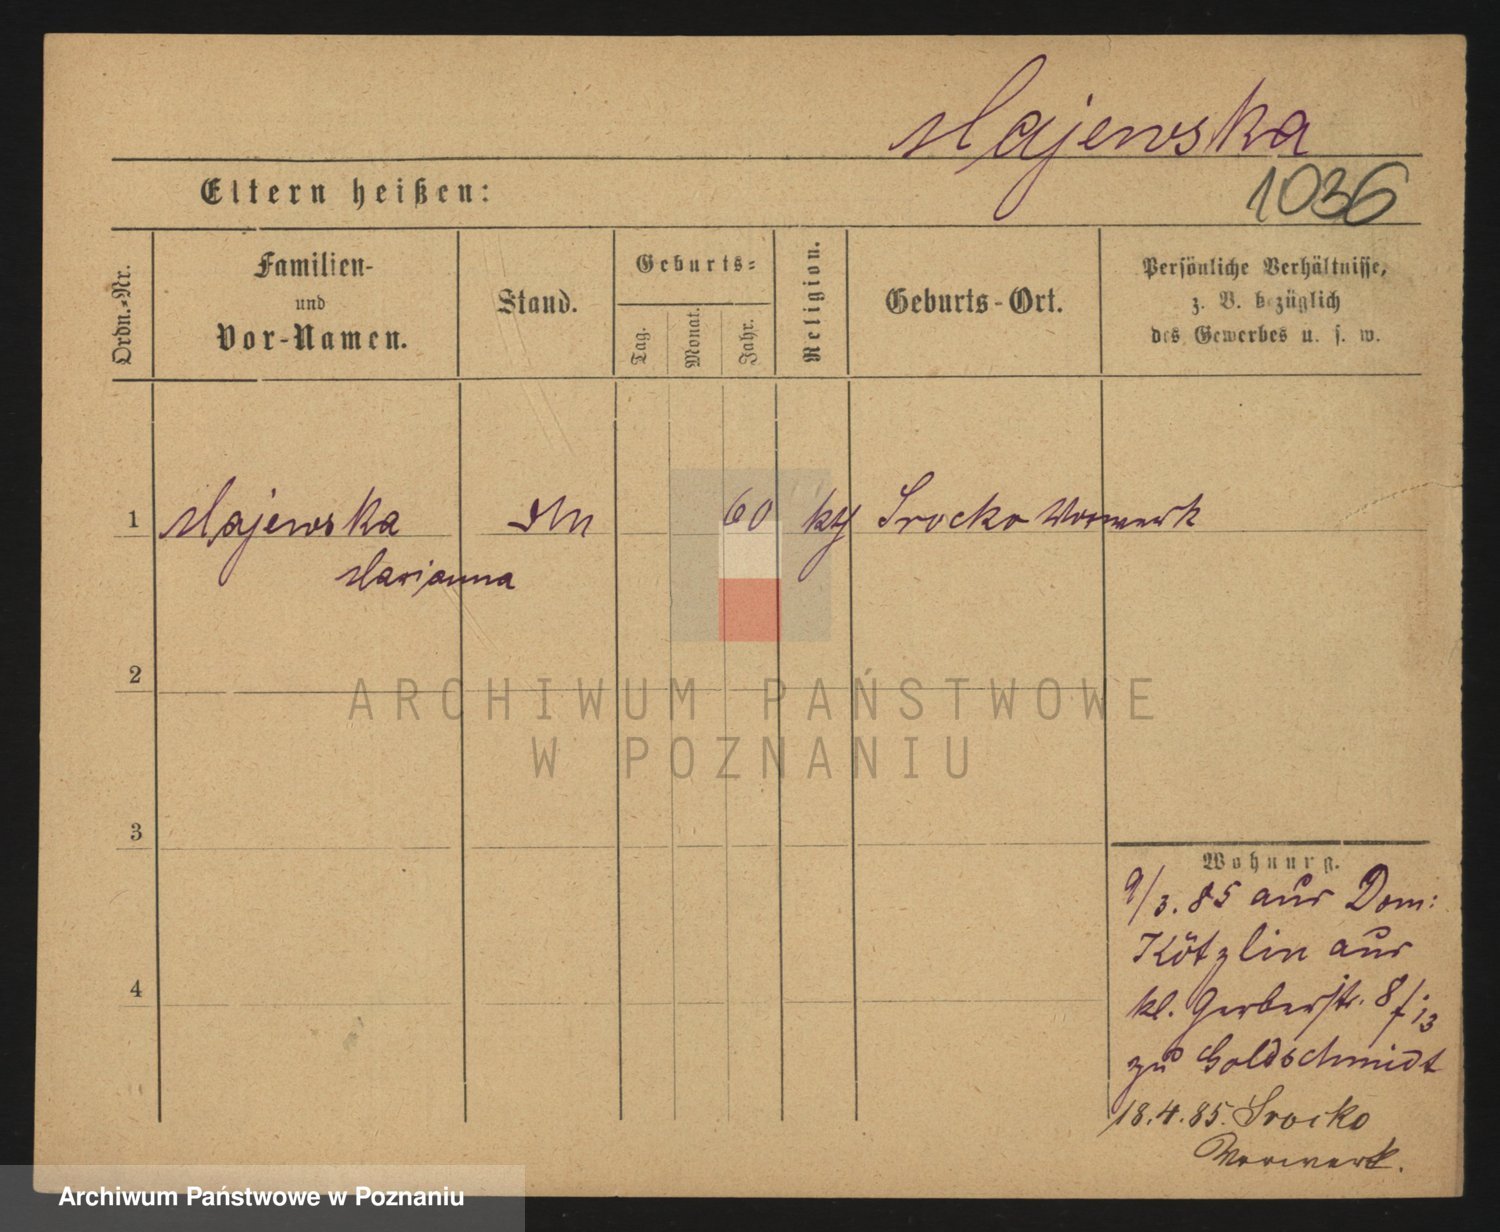 Majewska
Eltern heißen:
1036
Ordn.-Nr.
Familien-
und
Vor-Namen.
Stand.
Geburts-
Tag.
Monat.
Jahr.
Religion.
Geburts-Ort.
Persönliche Verhältnisse,
z. B. bezüglich
des Gewerbes u. s. w.
1 Majewska 60 Srocko Vorwerk
Marianna
2
ARCHIWUM PAŃSTWOWE
W POZNANIU
3
Wohnung.
9/3. 85 aus Dom:
Kötzlin aus
kl. Gerberstr. 8
zu Goldschmidt
4
18.4.85. Srocko
Vorwerk.
Archiwum Państwowe w Poznaniu